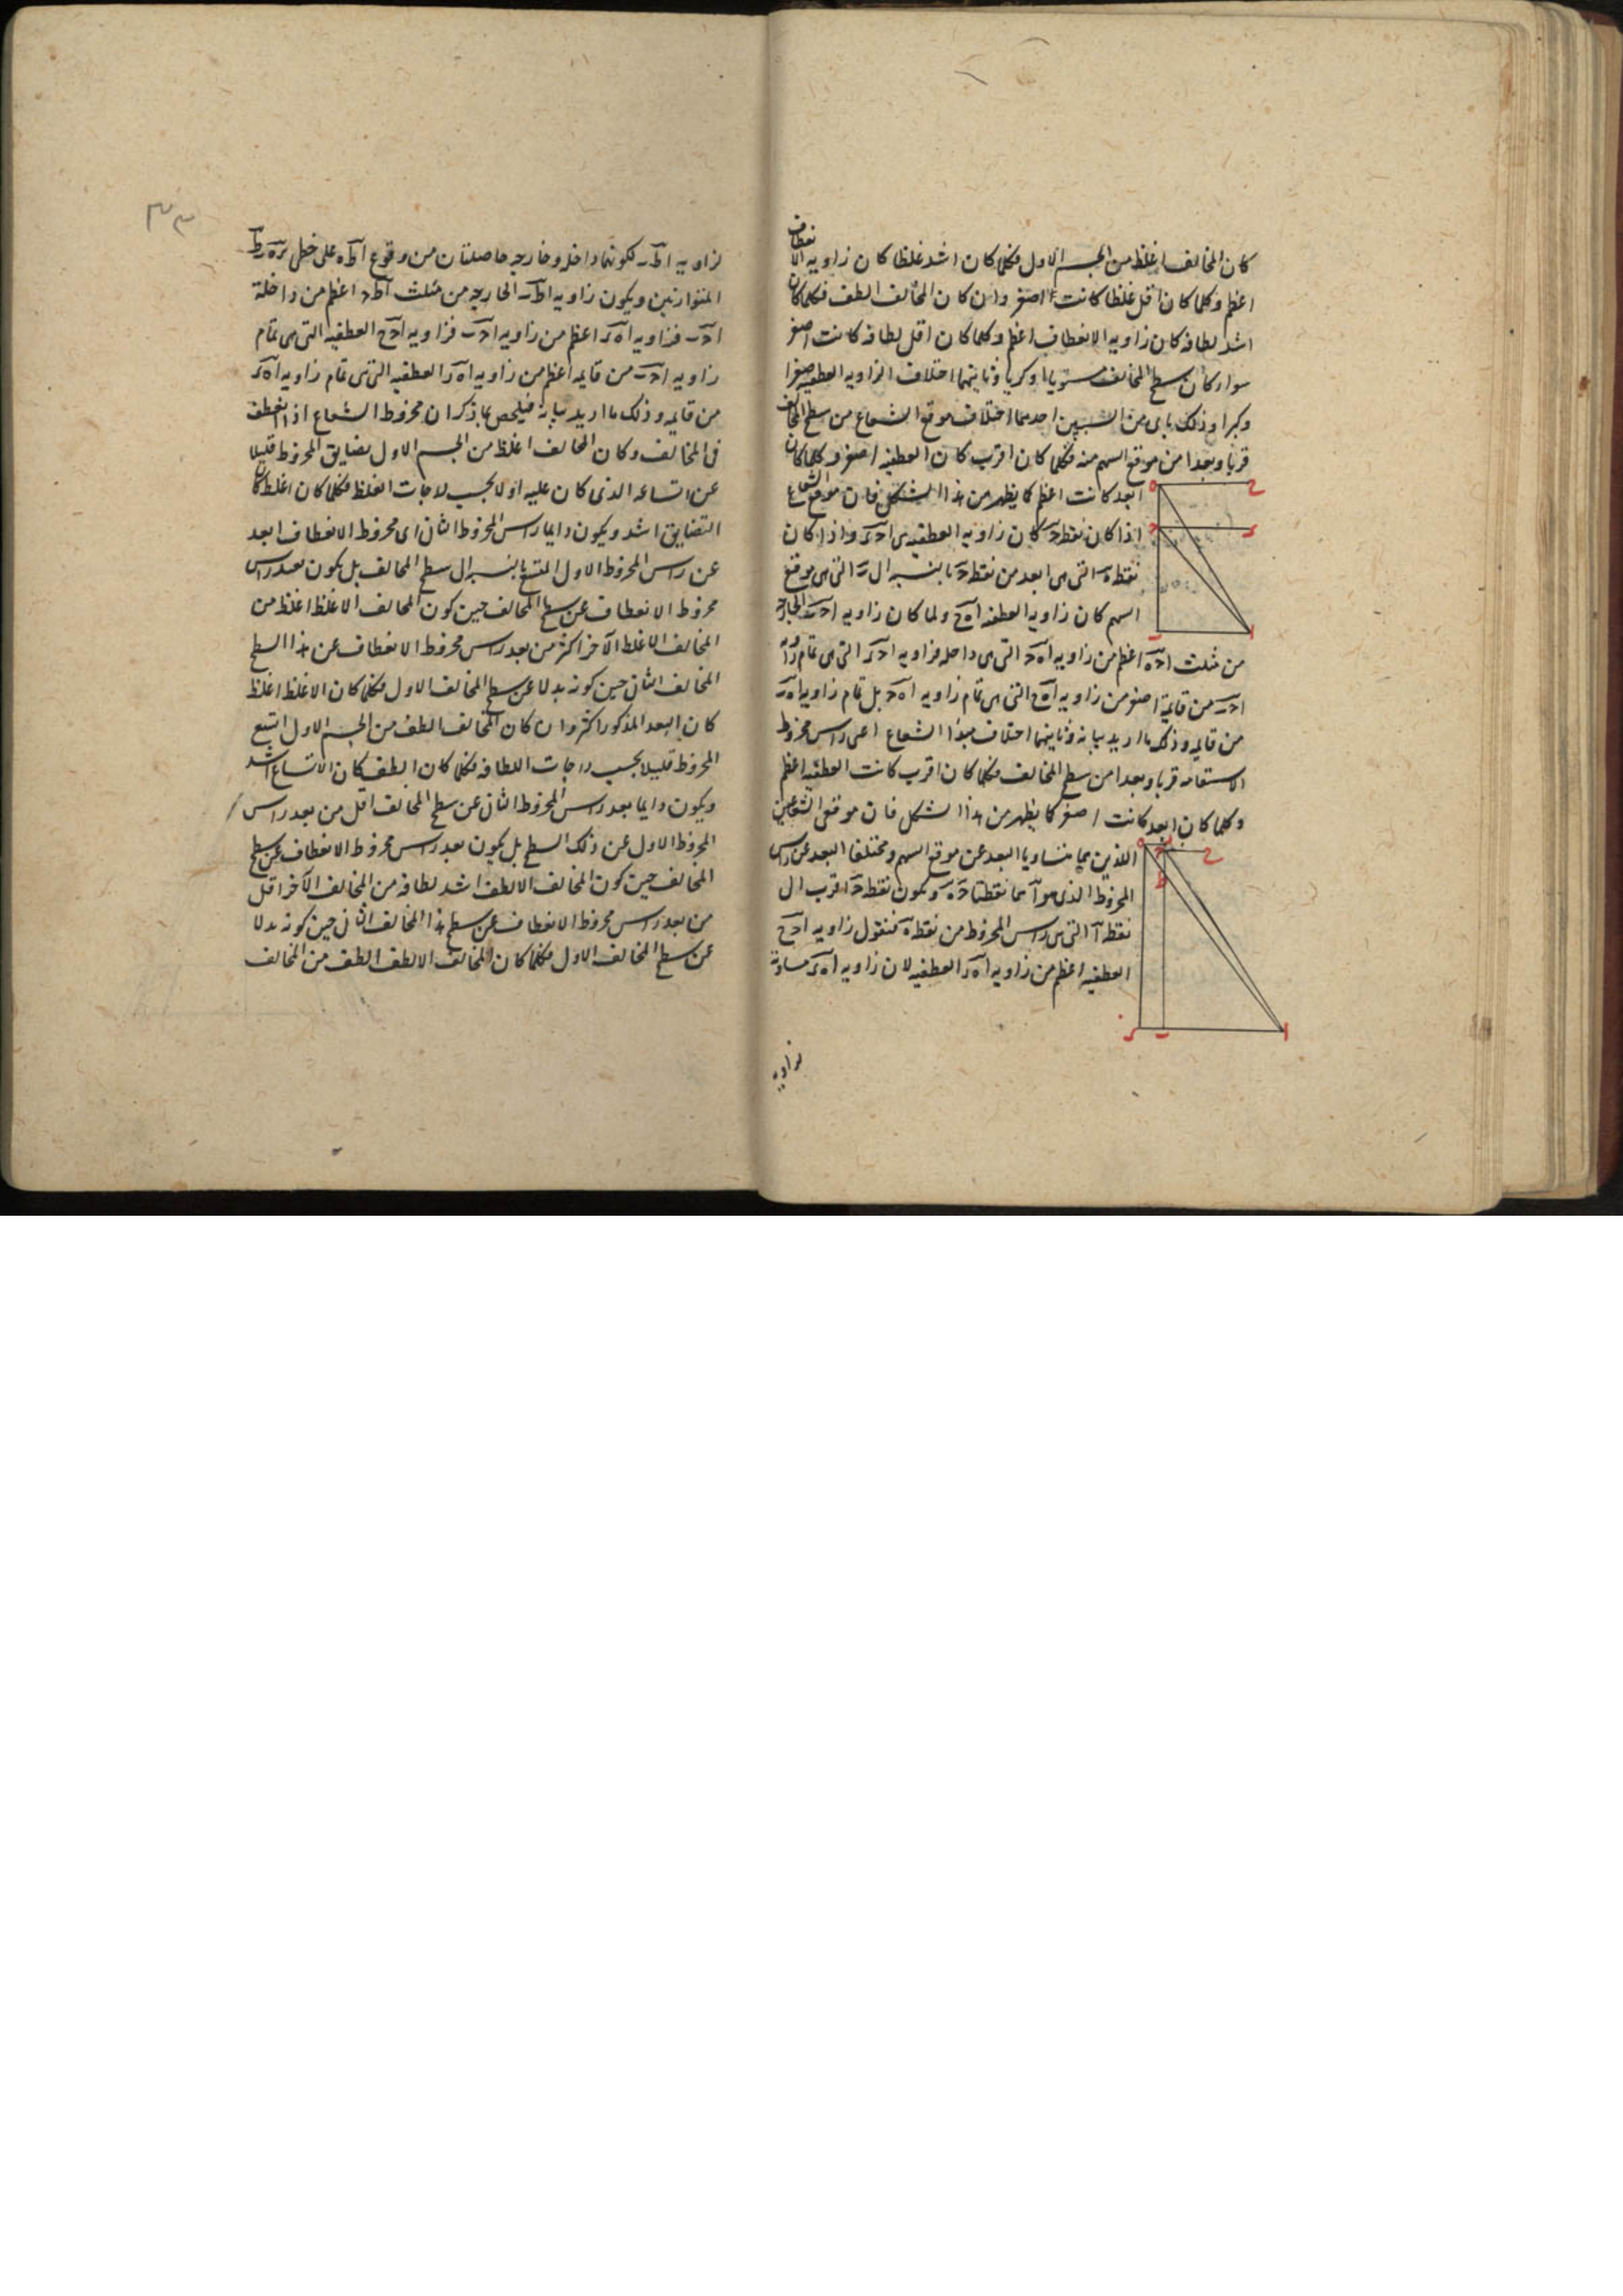 كان المخالف اغلظ من الجسم الاول فكلما كان اشد غلظا كان زاويه الانعطاف
اعظم وكلما كان اقل غلظا كانت اصغر وان كان المخالف الطف فكلما كان
اشد لطافه كان زاويه الانعطاف اعظم وكلما كان اقل لطافه كانت اصغر
سواء كان سطح المخالف مستويا او كريا وثانيهما اختلاف الزاويه العطفيه صغرا
وكبرا وذلك باى من السببين احدهما اختلاف موقع الشعاع من سطح المخالف
قربا وبعدا من موقع السهم منه فكلما كان اقرب كان العطفيه اصغر وكلما كان
ابعد كانت اعظم كما يظهر من هذا الشكل فان موقع الشعاع
اذا كان نقطه حـ كان زاويه العطفيه هى ا حـ ء واذا كان
نقطه ه التى هى ابعد من نقطه حـ بالنسبه الى ب التى هى موقع
السهم كان زاويه العطفيه ا ه ح ولما كان زاويه ا حـ ب الخارجه
من مثلث ا حـ ه اعظم من زاويه ا ه حـ التى هى داخله فزاويه ا حـ ء التى هى تمام زاويه
ا حـ ب من قايمة اصغر من زاويه ا ه ح التى هى تمام زاويه ا ه حـ بل تمام زاويه ا ه ب
من قايمه وذلك ما اريد بيانه وثانيهما اختلاف مبدا الشعاع اعنى راس مخروط
الاستقامه قربا وبعدا من سطح المخالف فكلما كان اقرب كانت العطفيه اعظم
وكلما كان ابعد كانت اصغر كما يظهر من هذا الشكل فان موقعى الشعاعين
اللذين هما متساويا البعد عن موقع السهم ومختلفا البعد عن راس
المخروط الذى هو آ هما نقطتا حـ ه ويكون نقطه حـ اقرب الى
نقطه آ التى هى راس المخروط من نقطه ه فنقول زاويه ا حـ ح
العطفيه اعظم من زاويه ا ه ء العطفيه لان زاويه ا ه ء مساوية
لزاويه
٣٣
لزاويه ا ط ب لكونهما داخله وخارجه حاصلتان من وقوع ا ط ه على خطى
المتوازيين ويكون زاويه ا ط ب الخارجه من مثلث ا ط حـ اعظم من داخلة
ا حـ ب فزاويه ا ه ء اعظم من زاويه ا حـ ب فزاويه ا حـ ح العطفيه التى هى تمام
زاويه ا حـ ب من قايمه اعظم من زاويه ا ه ء العطفيه التى هى تمام زاويه ا ه ء
من قايمه وذلك ما اريد بيانه فيلخص بما ذكر ان مخروط الشعاع اذا انعطف
فى المخالف وكان المخالف اغلظ من الجسم الاول تضايق المخروط قليلا
عن اتساعه الذى كان عليه اولا بحسب درجات الغلظ فكلما كان اغلظ كان
التضايق اشد ويكون دايما راس المخروط الثانى اى مخروط الانعطاف ابعد
عن راس المخروط الاول المتسع بالنسبه الى سطح المخالف بل يكون بعد راس
مخروط الانعطاف عن سطح المخالف حين كون المخالف الاغلظ اغلظ من
المخالف الاغلظ الآخر اكثر من بعد راس مخروط الانعطاف عن هذا السطح
المخالف الثانى حين كونه بدلا عن سطح المخالف الاول فكلما كان الاغلظ اغلظ
كان البعد المذكور اكثر وان كان المخالف الطف من الجسم الاول اتسع
المخروط قليلا بحسب درجات اللطافه فكلما كان الطف كان الاتساع اشد
ويكون دايما بعد راس المخروط الثانى عن سطح المخالف اقل من بعد راس
المخروط الاول عن ذلك السطح بل يكون بعد راس مخروط الانعطاف عن سطح
المخالف حين كون المخالف الالطف اشد لطافه من المخالف الآخر اقل
من بعد راس مخروط الانعطاف عن سطح هذا المخالف الثانى حين كونه بدلا
عن سطح المخالف الاول فكلما كان المخالف الالطف الطف من المخالف